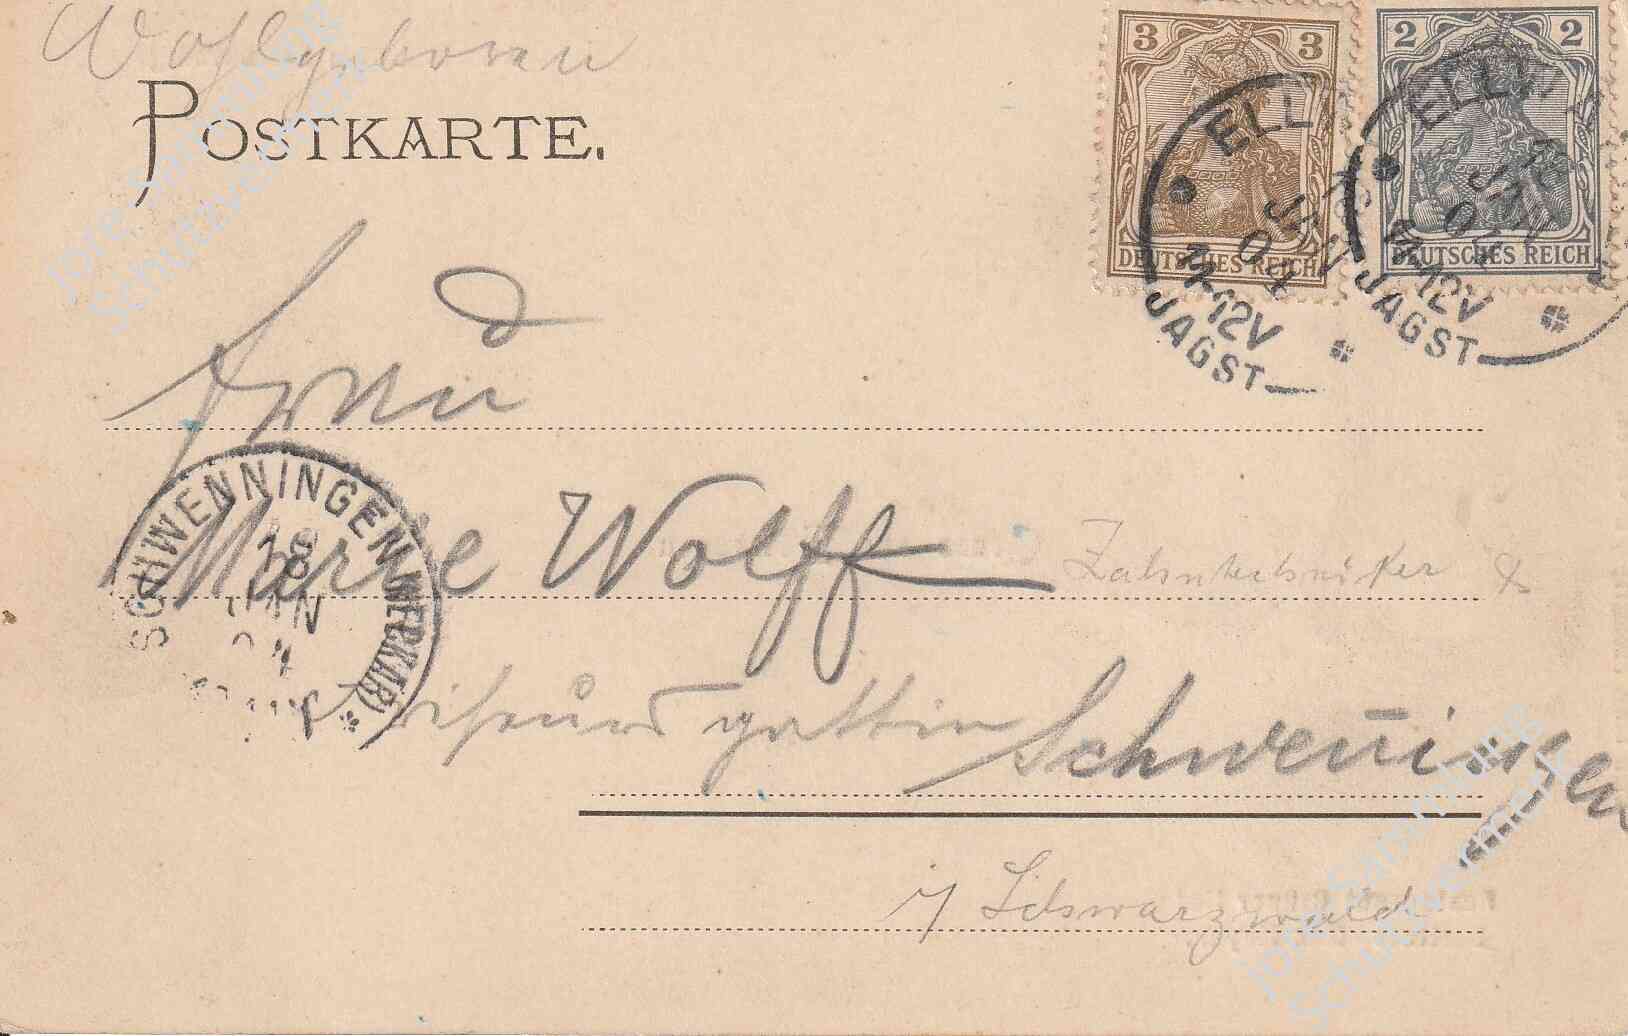 Wohlgeboren
POSTKARTE.
3 3
DEUTSCHES REICH
2 2
DEUTSCHES REICH
ELL
18 JAN 04
11-12V
JAGST
ELLW
18 JAN 04
11-12V
JAGST
Frau
SCHWENNINGEN (NECKAR)
18 JAN
Marie Wolff Zahntechniker &
gattin Schwenningen
i/ Schwarzwald
Jore-Sammlung
Schutzvermerk
Jore-Sammlung
Schutzvermerk